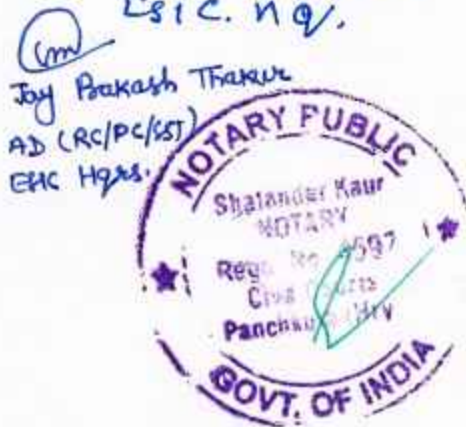 ESIC. H Q.
Jay Prakash Thakur
AD (RC/PC/SST)
ESIC Hqrs.
NOTARY PUBLIC
Shalander Kaur
NOTARY
Regd. No
Panchkula
GOVT. OF INDIA